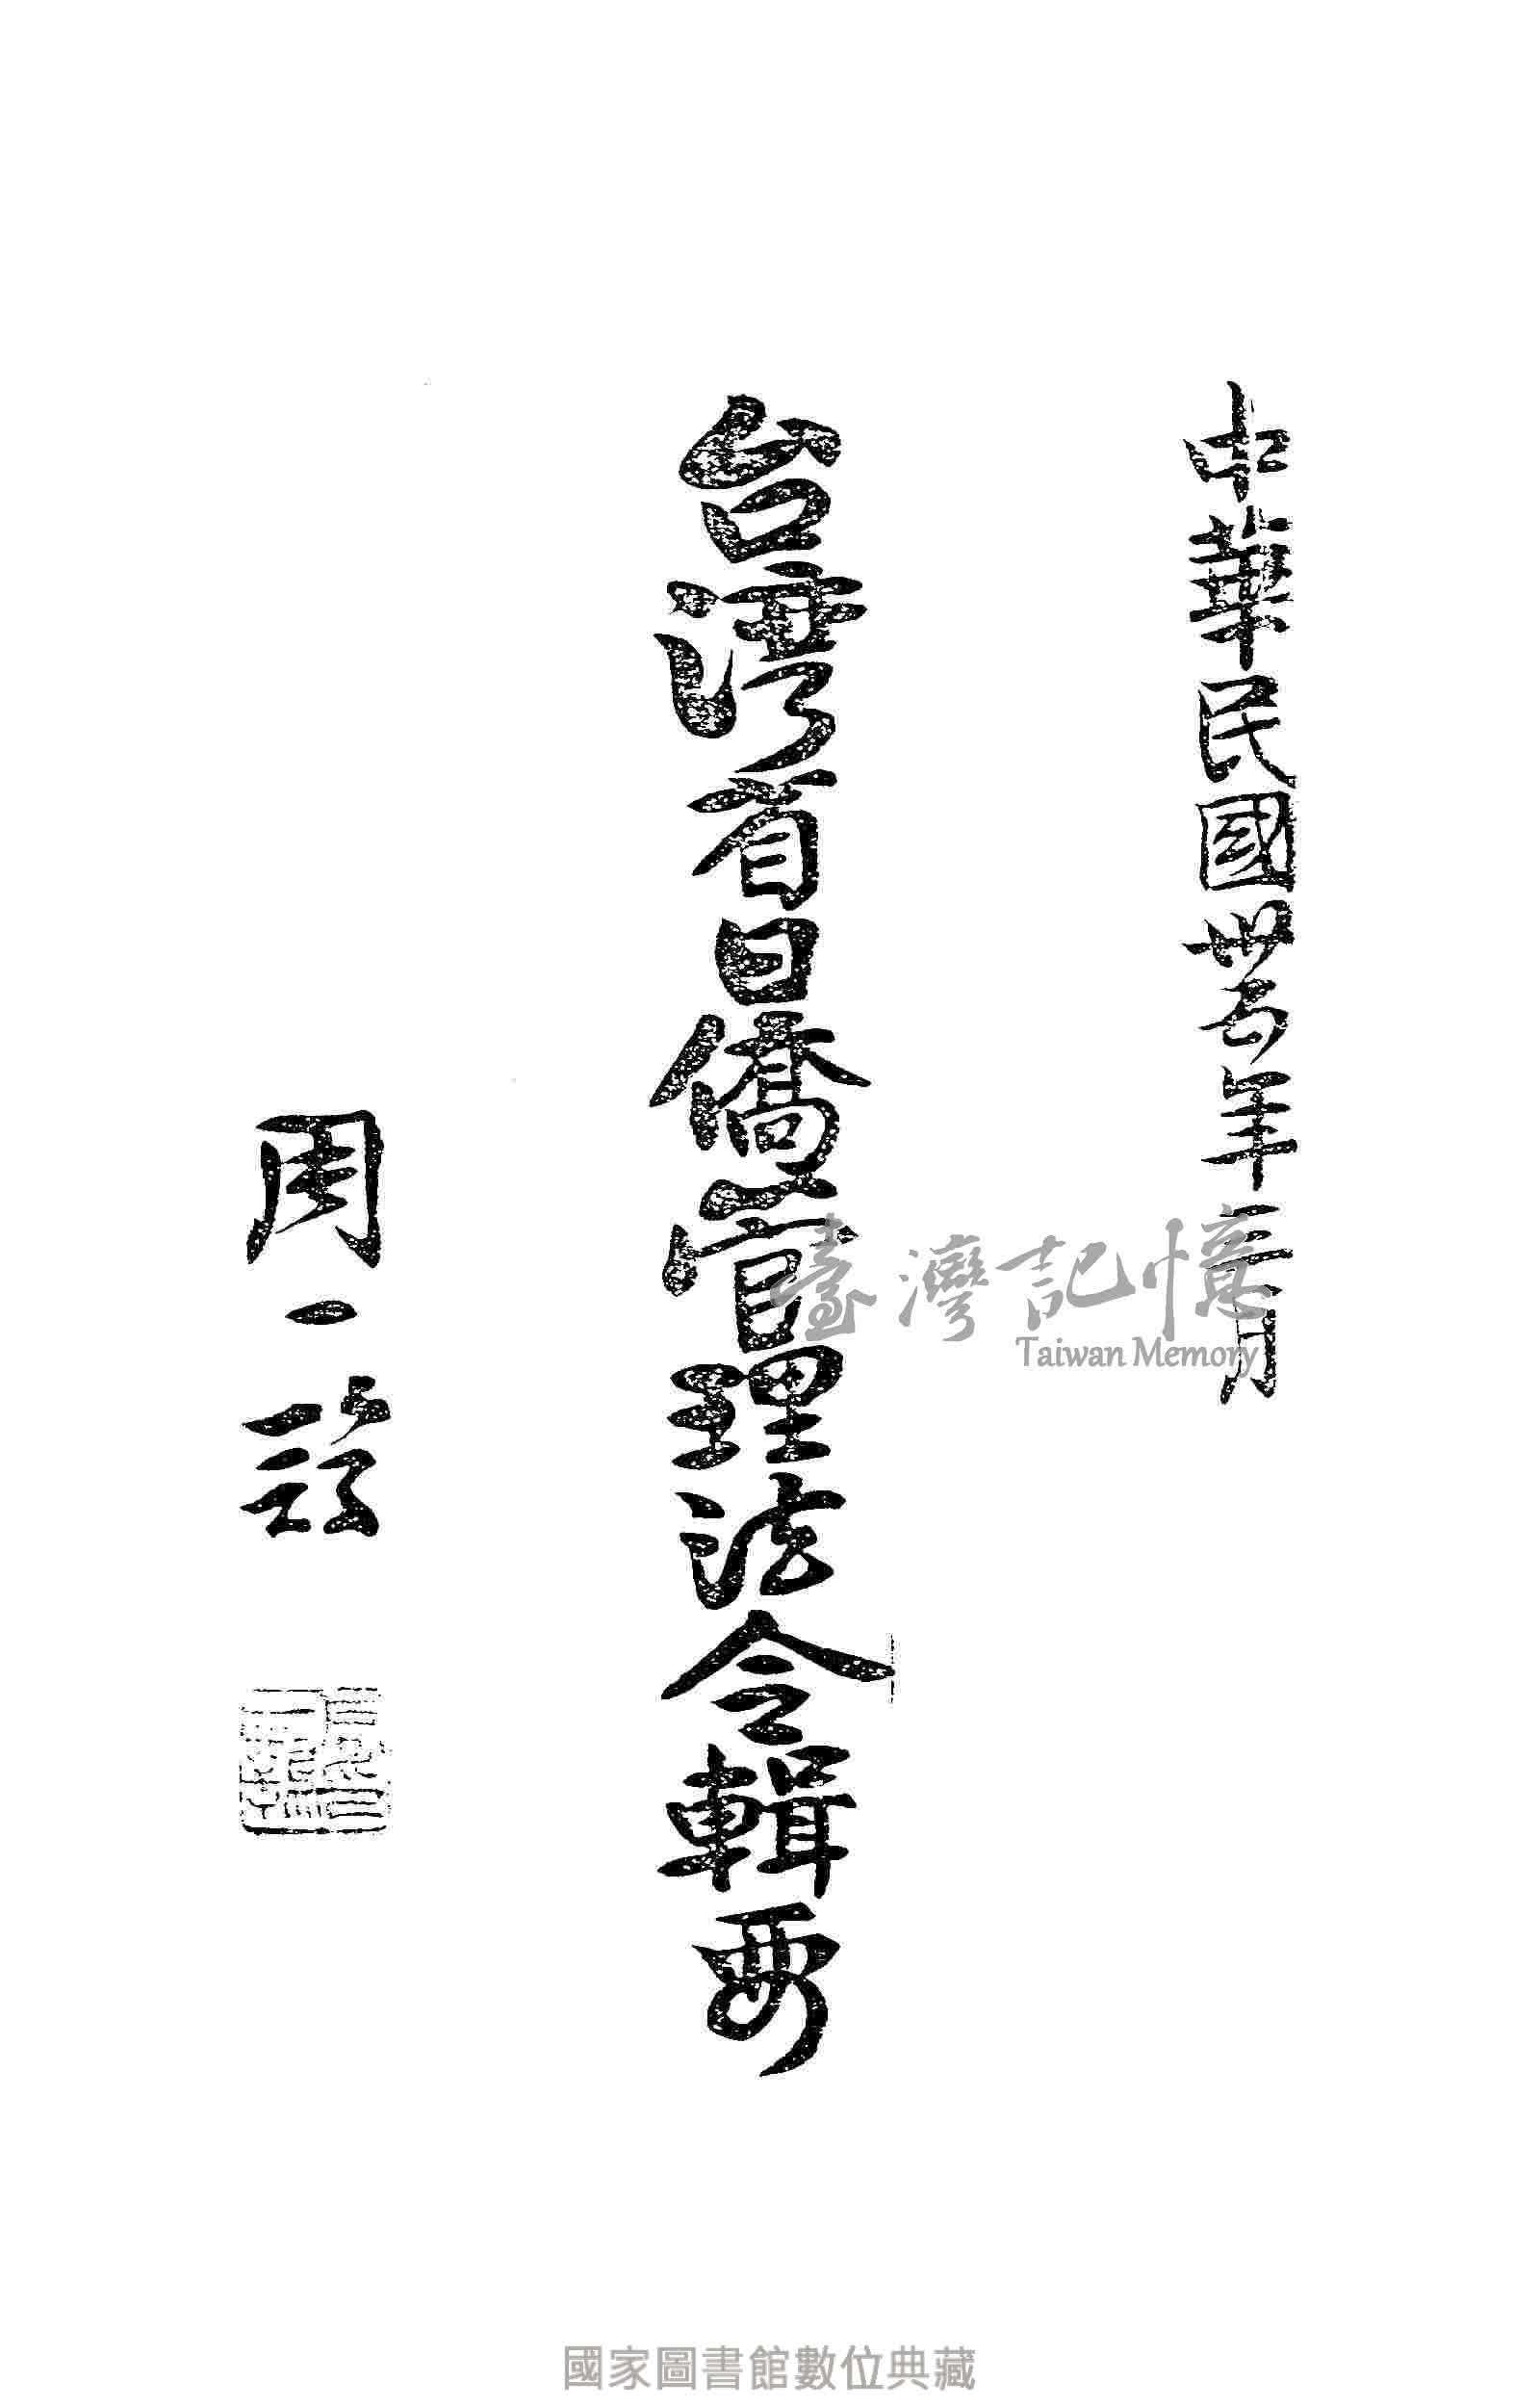 中華民國卅五年三月
台湾省日僑管理法令輯要
周一鶚
臺灣記憶
Taiwan Memory
國家圖書館數位典藏